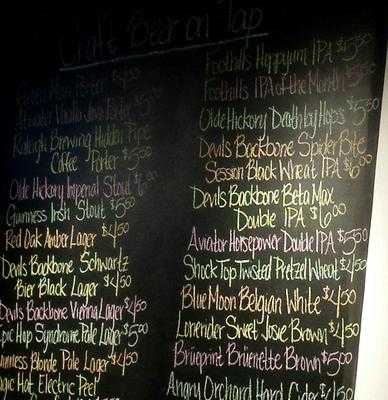 Craft Beer on Tap
Porter $4.50
Vanilla Java Porter $5.00
Raleigh Brewing Hidden Pipe
Coffee Porter $5.50
Olde Hickory Imperial Stout $6.00
Guinness Irish Stout $5.50
Red Oak Amber Lager $4.50
Devils Backbone Schwartz
Bier Black Lager $4.50
Devils Backbone Vienna Lager $4.50
Epic Hop Syndrome Pale Lager $5.00
Guinness Blonde Pale Lager $4.50
Magic Hat Electric Peel
Foothills Hoppyum IPA $5.50
Foothills IPA of the Month $5.50
Olde Hickory Death by Hops $5.50
Devils Backbone Spider Bite
Session Black Wheat IPA $6.00
Devils Backbone Beta Max
Double IPA $6.00
Aviator Horsepower Double IPA $5.50
Shock Top Twisted Pretzel Wheat $4.50
Blue Moon Belgian White $4.50
Lonerider Sweet Josie Brown $4.50
Brüeprint Brüenette Brown $5.00
Angry Orchard Hard Cyder $4.50